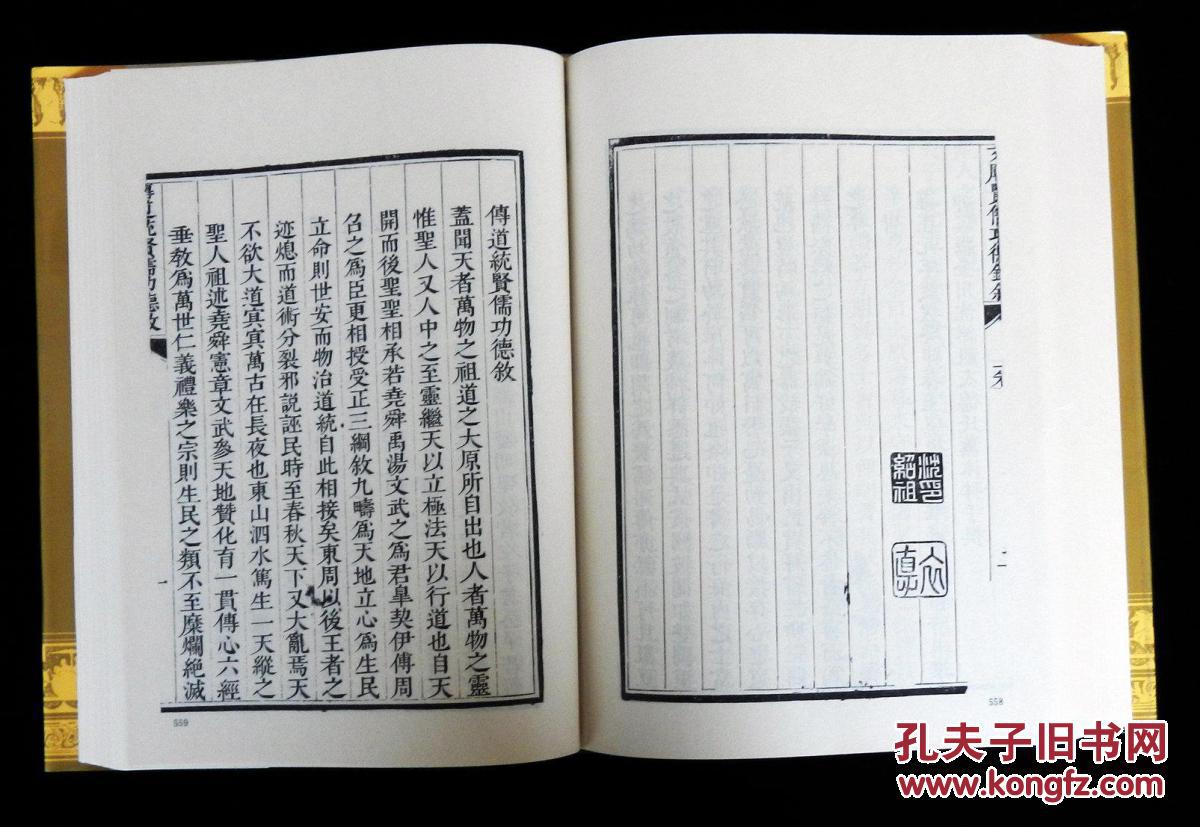 沈紹祖印
558
傳道統賢儒功德敘
蓋聞天者萬物之祖道之大原所自出也人者萬物之靈
惟聖人又人中之至靈繼天以立極法天以行道也自天
開而後聖聖相承若堯舜禹湯文武之爲君臯契伊傅周
召之爲臣更相授受正三綱敘九疇爲天地立心爲生民
立命則世安而物治道統自此相接矣東周以後王者之
迹熄而道術分裂邪説誣民時至春秋天下又大亂焉天
不欲大道宾宾萬古在長夜也東山泗水篤生一天縱之
聖人祖述堯舜憲章文武參天地贊化育一貫傳心六經
垂教爲萬世仁義禮樂之宗則生民之類不至糜爛絶滅
傳道統賢儒功德敘
一
559
孔夫子旧书网
www.kongfz.com